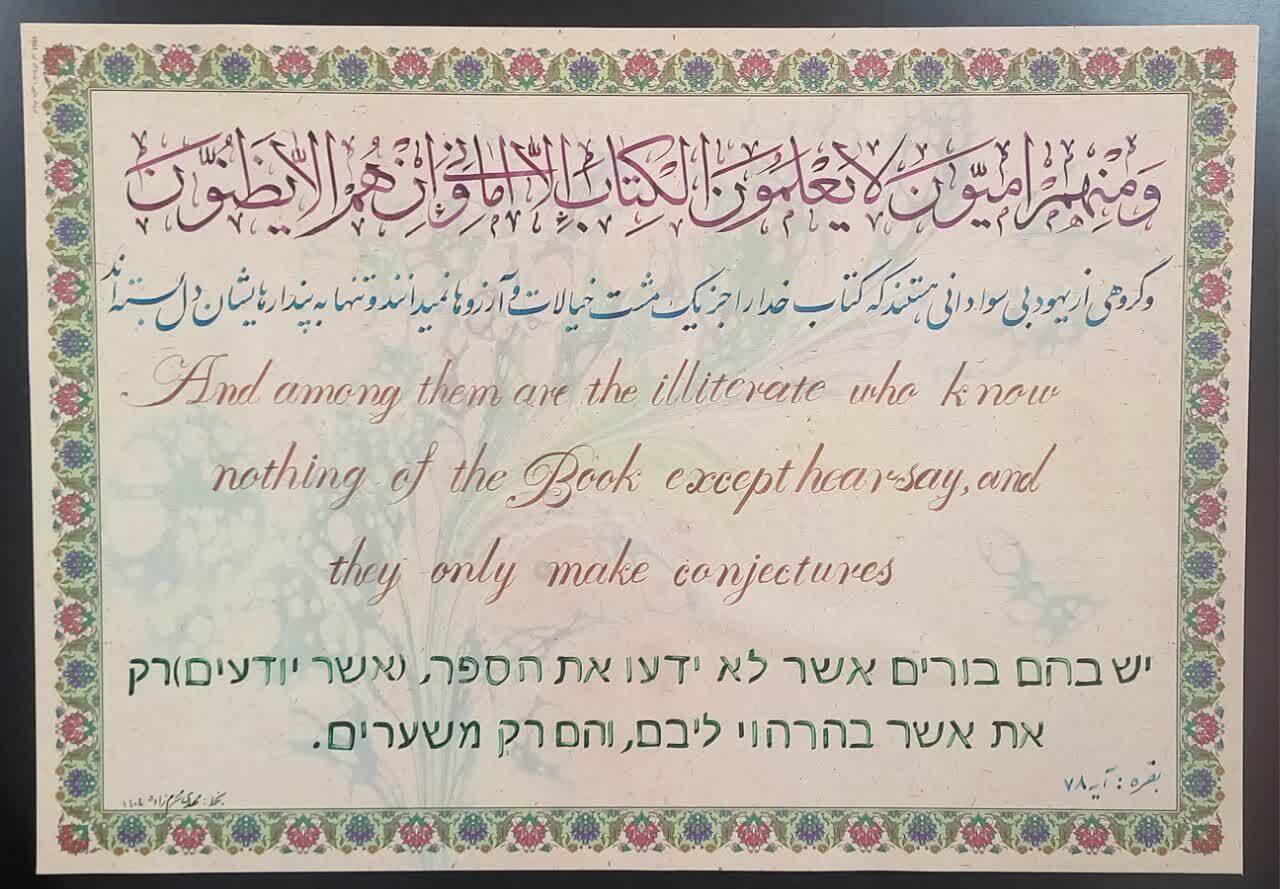 وَمِنْهُمْ اُمِّيّوُنَ لا يَعْلَمُونَ الْكِتابَ إِلاّٰ اَمانِيَّ وَاِنْ هُمْ اِلاّٰ يَظُنُّونَ
وگروهی از یهود بی سوادانی هستند که کتاب خدا را جز یک مشت خیالات و آرزوها نمیدانند و تنها به پندارهایشان دل بسته اند
And among them are the illiterate who know
nothing of the Book except hearsay, and
they only make conjectures
יש בהם בורים אשר לא ידעו את הספר, (אשר יודעים) רק
את אשר בהרהוי ליבם, והם רק משערים.
بقره : آیه ۷۸
بخط : مهدی مکرم زاده